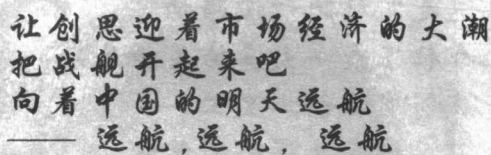 让创思迎着市场经济的大潮
把战舰开起来吧
向着中国的明天远航
—— 远航,远航, 远航